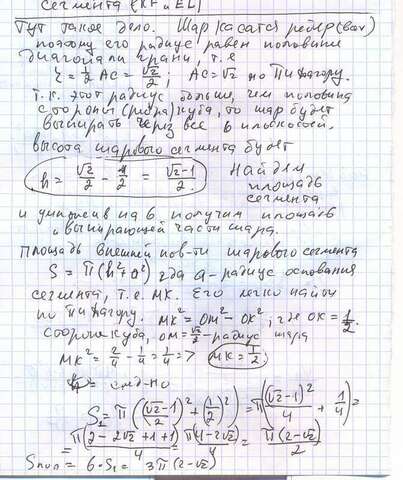 сегмента (KF и EL)
Тут такое дело. Шар касается рёбер (всех)
поэтому его радиус равен половине
диагонали грани, т.е.
r = 1/2 AC = √2/2; AC = √2 по Пифагору.
Т.к. этот радиус больше, чем половина
стороны (ребра) куба, то шар будет
выпирать через все 6 плоскостей.
высота шарового сегмента будет
h = √2/2 - 1/2 = (√2-1)/2. Найдём
площадь
сегмента
и умножив на 6 получим площадь
выпирающей части шара.
Площадь внешней пов-ти шарового сегмента
S = π(h²+a²) где a - радиус основания
сегмента, т.е. MK. Его легко найти
по Пифагору. MK² = OM² - OK²; где OK = 1/2
стороны куба, OM = √2/2 - радиус шара
MK² = 2/4 - 1/4 = 1/4 => MK = 1/2;
= след-но
S₁ = π(((√2-1)/2)² + (1/2)²) = π((√2-1)²/4 + 1/4) =
= π(2-2√2+1+1)/4 = π(4-2√2)/4 = π(2-√2)/2
Sпол = 6·S₁ = 3π(2-√2)